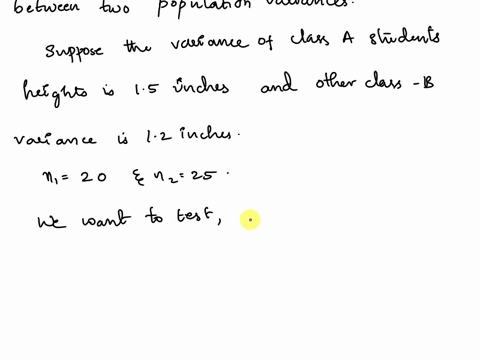 between two population variances.
Suppose the variance of class A students
heights is 1.5 inches and other class -B
variance is 1.2 inches.
n₁ = 20 & n₂ = 25.
We want to test,